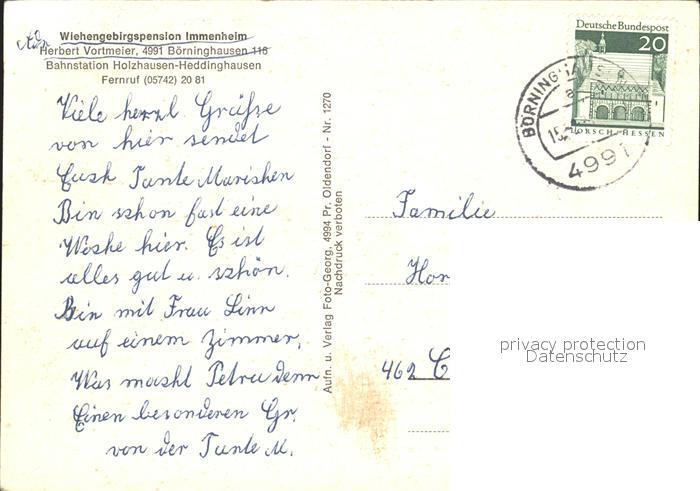 Wiehengebirgspension Immenheim
Adr. Herbert Vortmeier, 4991 Börninghausen 116
Bahnstation Holzhausen-Heddinghausen
Fernruf (05742) 20 81
Viele herzl. Grüße
von hier sendet
Euch Tante Marichen
Bin schon fast eine
Woche hier. Es ist
alles gut u. schön.
Bin mit Frau Linn
auf einem Zimmer.
Was macht Petra denn
Einen besonderen Gr.
von der Tante M.
Aufn. u. Verlag Foto-Georg, 4994 Pr. Oldendorf - Nr. 1270
Nachdruck verboten
Deutsche Bundespost
20
LORSCH/HESSEN
4991
Familie
Hor
462 C
privacy protection
Datenschutz